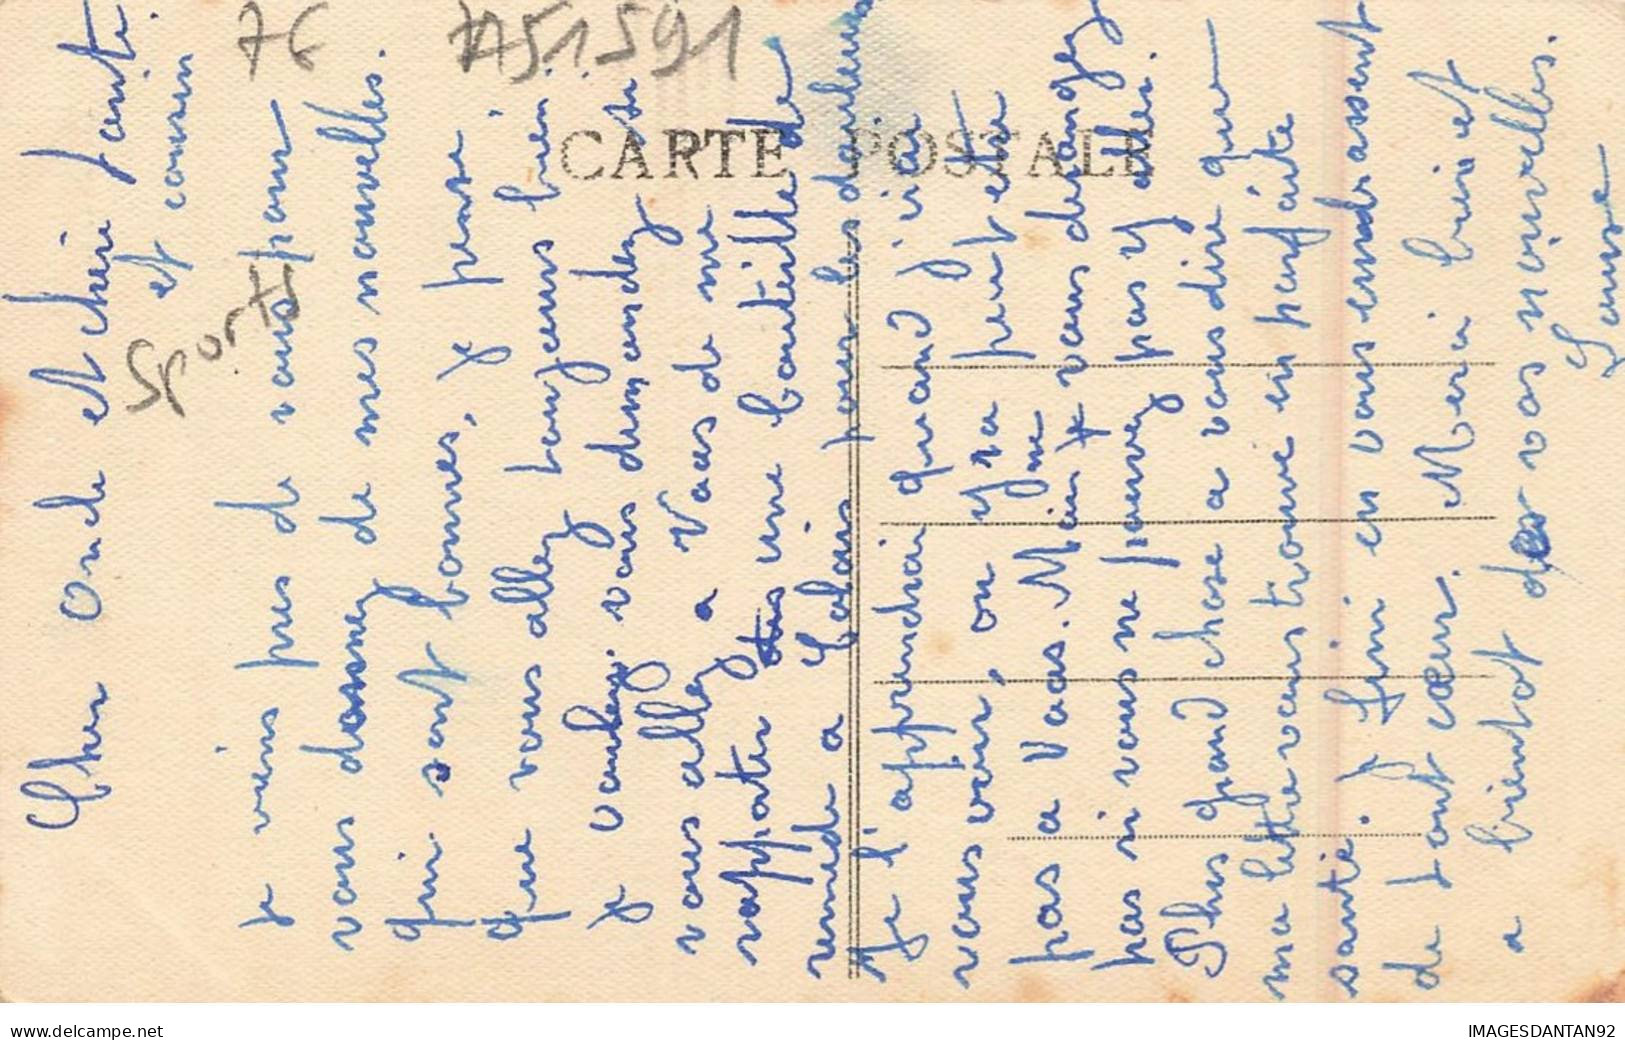 Cher Oncle et chère tante.
et cousin
Je viens pres de vous pour
vous donner de mes nouvelles.
qui sont bonnes, je pense
que vous allez toujours bien.
Je voulez vous demandez si
vous allez a Vaas de me
rapporter une bouteille de
remede a pour les douleurs
Je l'apprendrai quand j'irai
vous voir, on y va peut etre
pas a Vaas. Mais je vous derangez
pas si vous ne pouvez pas y aller.
Plus grand chose a vous dire que
ma lettre vous trouve en parfaite
santé. Je fini en vous embrassent
de tout cœur. Merci bien et
a bientot de vos nouvelles.
CARTE POSTALE
76
751591
Sports
www.delcampe.net
IMAGESDANTAN92